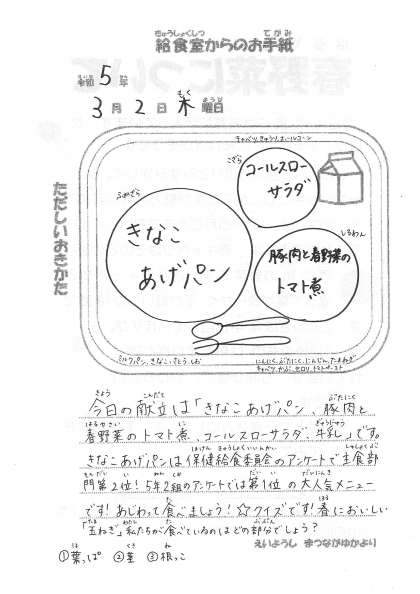 給食室からのお手紙
令和5年
3月2日木曜日
ただしいおきかた
キャベツ、きゅうり、ホールコーン
こざら
コールスロー
サラダ
ふかざら
きなこ
あげパン
しるわん
豚肉と春野菜の
トマト煮
ミルクパン、きなこ、さとう、しお
にんにく、ぶたにく、にんじん、たまねぎ
キャベツ、かぶ、セロリ、トマトペースト
今日の献立は「きなこあげパン、豚肉と
春野菜のトマト煮、コールスローサラダ、牛乳」です。
きなこあげパンは保健給食委員会のアンケートで主食部
門第2位!5年2組のアンケートでは第1位の大人気メニュー
です!あじわって食べましょう!☆クイズです!春においしい
「玉ねぎ」私たちが食べているのはどの部分でしょう?
えいようし まつながゆかより
①葉っぱ ②茎 ③根っこ